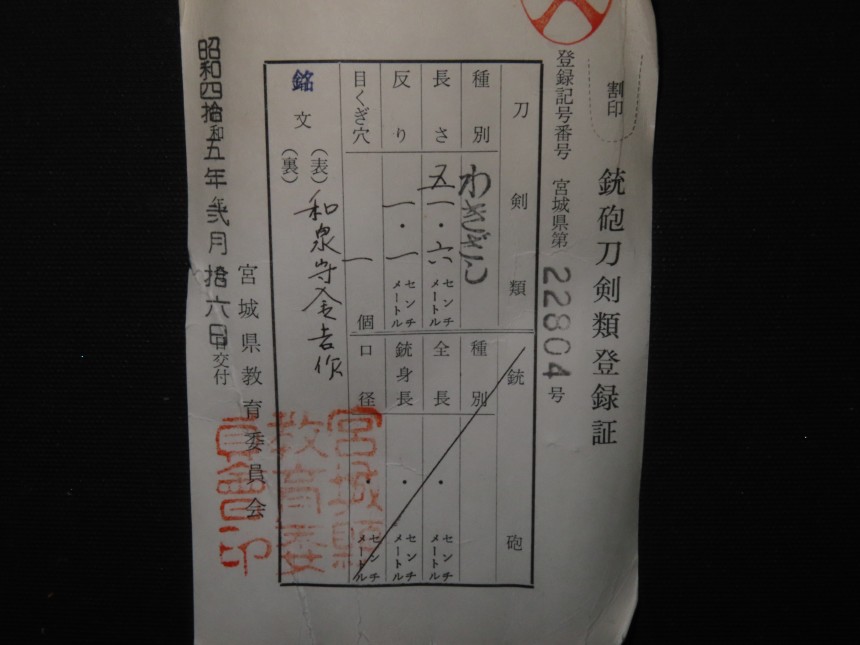 割印
銃砲刀剣類登録証
登録記号番号 宮城県第22804号
刀剣類
種別 わきざし
長さ 五一・六 センチメートル
反り 一・一 センチメートル
目くぎ穴 一 個
銘文 (表) 和泉守金吉作
(裏)
銃砲
種別
全長 ・ センチメートル
銃身長 ・ センチメートル
口径 ・ センチメートル
宮城県教育委員会
昭和四拾五年弐月拾六日交付
宮城縣
教育委
員會印